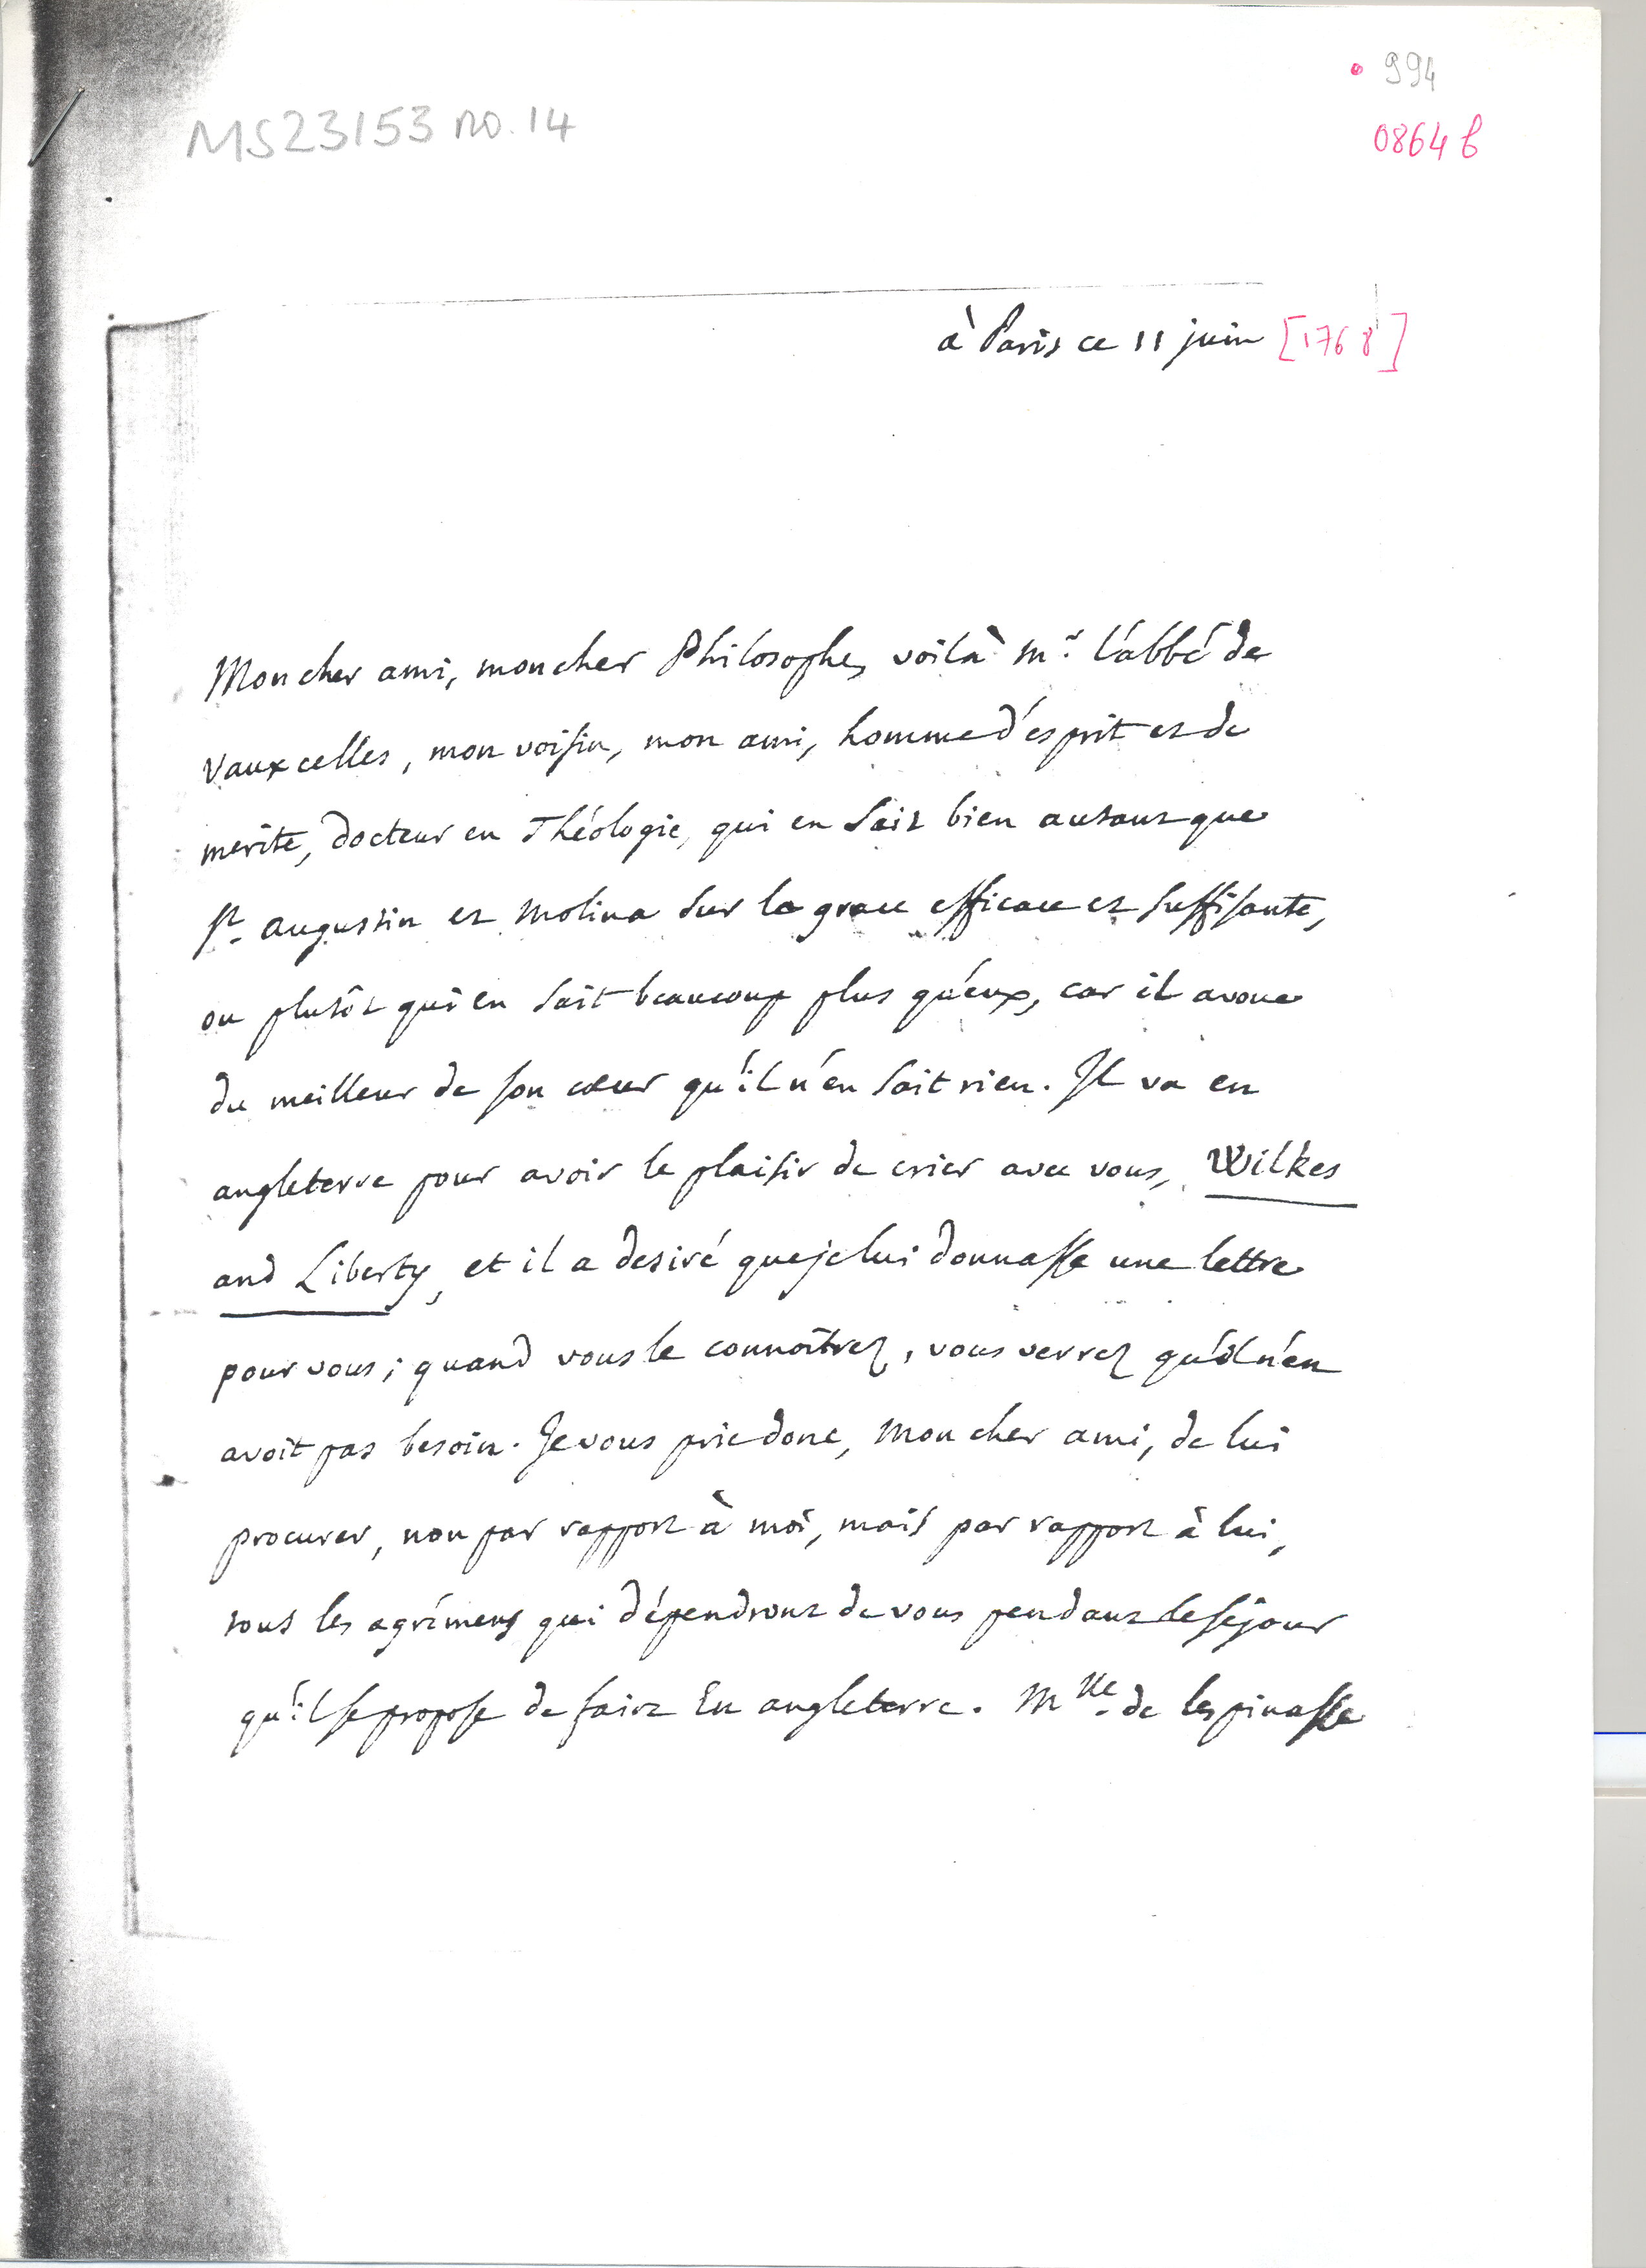 994
MS23153 no. 14
0864 b
à Paris ce 11 juin [1768]
Mon cher ami, mon cher Philosophe, voilà mr. l'abbé de
Vauxcelles, mon voisin, mon ami, homme d'esprit et de
merite, Docteur en Théologie, qui en sait bien autant que
St. augustin et Molina sur la grace efficace et suffisante,
ou plutôt qui en sait beaucoup plus qu'eux, car il avoue
du meilleur de son cœur qu'il n'en sait rien. Il va en
angleterre pour avoir le plaisir de crier avec vous, Wilkes
and Liberty, et il a desiré que je lui donnasse une lettre
pour vous; quand vous le connoîtrez, vous verrez qu'il n'en
avoit pas besoin. Je vous prie donc, mon cher ami, de lui
procurer, non par rapport à moi, mais par rapport à lui,
tous les agrémens qui dépendront de vous pendant le séjour
qu'il se propose de faire En angleterre. Mlle. de lespinasse